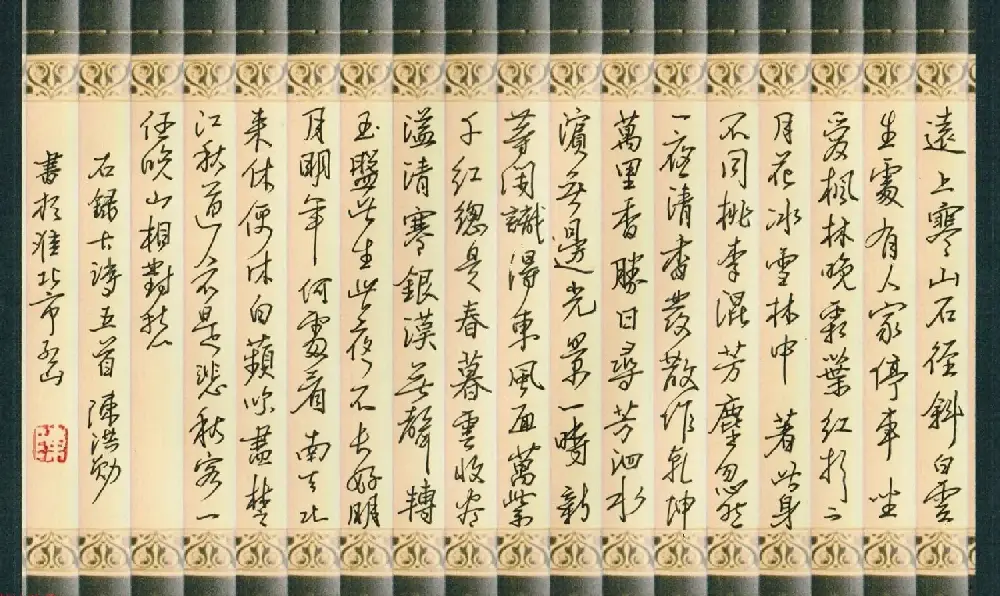 遠上寒山石徑斜白雲
生處有人家停車坐
愛楓林晚霜葉紅於二
月花冰雪林中著此身
不同桃李混芳塵忽然
一夜清香發散作乾坤
萬里春勝日尋芳泗水
濱無邊光景一時新
等閑識得東風面萬紫
千紅總是春暮雲收盡
溢清寒銀漢無聲轉
玉盤此生此夜不長好明
月明年何處看 南去北
來休便休白蘋吹盡楚
江秋道人不是悲秋客一
任晚山相對愁
右錄古詩五首 陳浩勛
書於淮北市